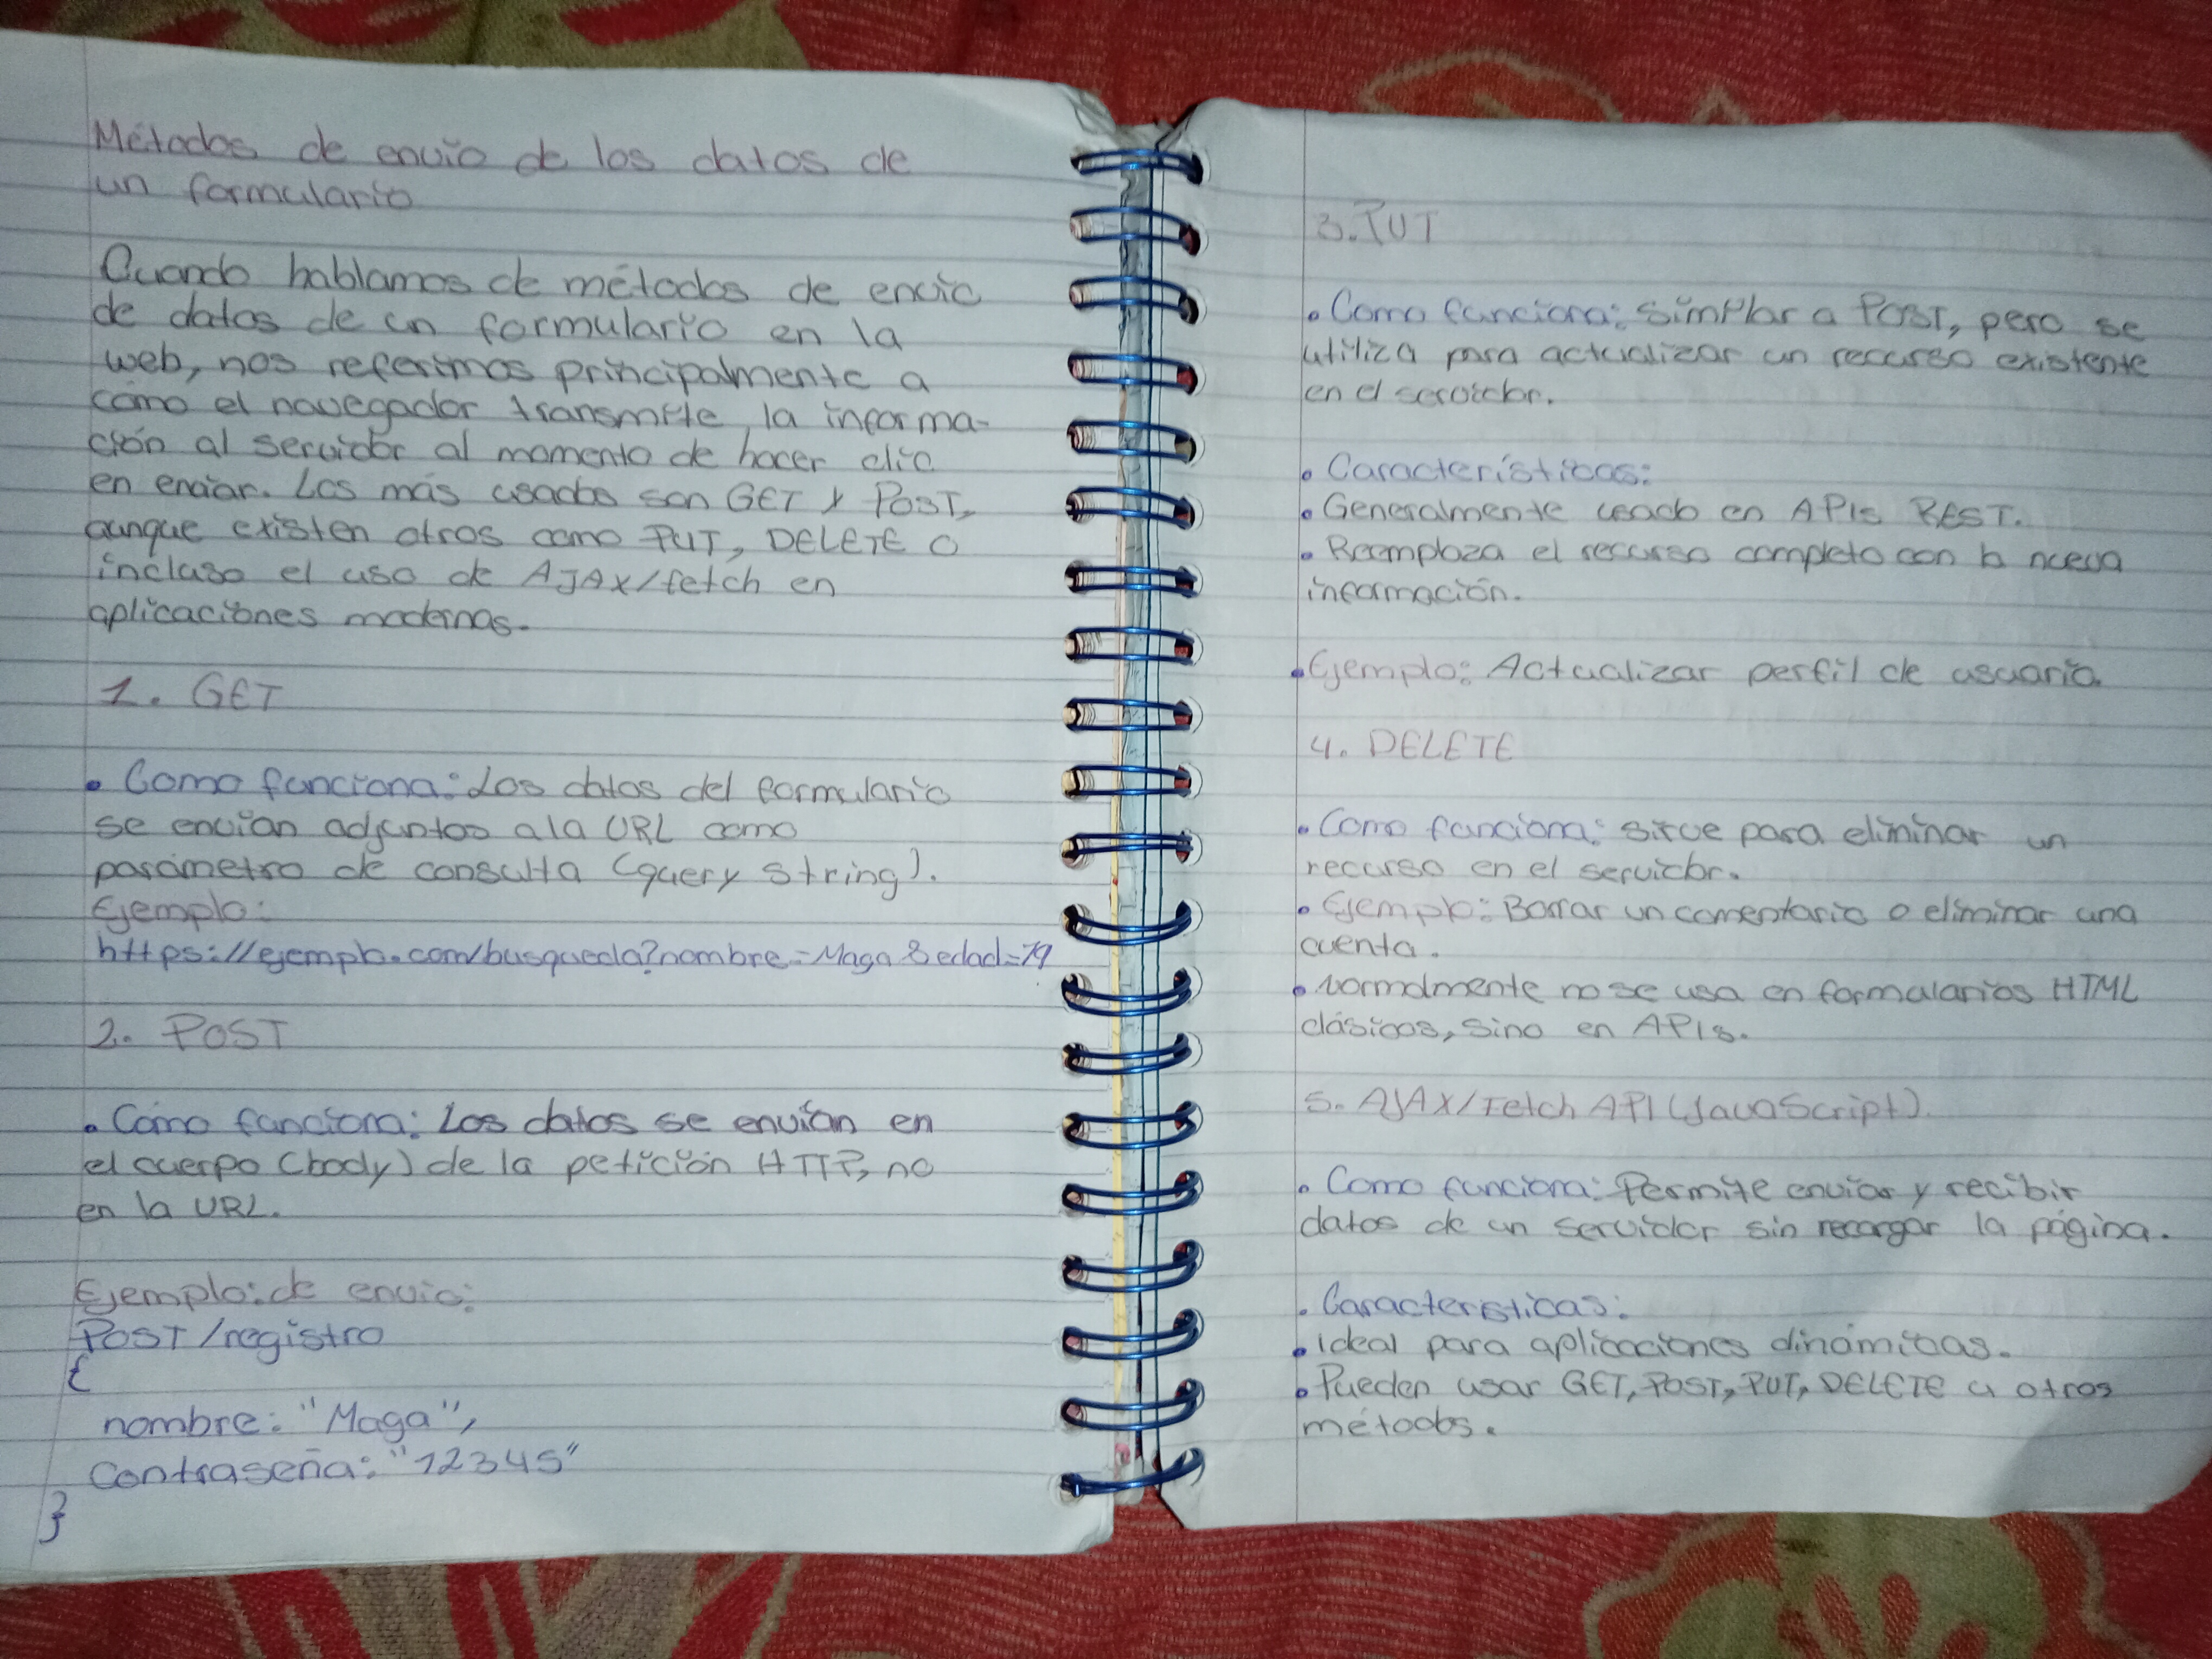 Métodos de envío de los datos de
un formulario
Cuando hablamos de métodos de envio
de datos de un formulario en la
web, nos referimos principalmente a
cómo el navegador transmite la informa-
ción al servidor al momento de hacer clic
en enviar. Los más usados son GET y POST,
aunque existen otros como PUT, DELETE o
incluso el uso de AJAX/fetch en
aplicaciones modernas.
1. GET
• Como funciona: Los datos del formulario
se envían adjuntos a la URL como
parámetro de consulta (query string).
Ejemplo:
https://ejemplo.com/busqueda?nombre=Maga&edad=19
2. POST
• Cómo funciona: Los datos se envían en
el cuerpo (body) de la petición HTTP, no
en la URL.
Ejemplo: de envio:
POST /registro
{
nombre: "Maga",
contraseña: "12345"
}
3. PUT
• Como funciona: Similar a POST, pero se
utiliza para actualizar un recurso existente
en el servidor.
• Características:
• Generalmente usado en APIs REST.
• Reemplaza el recurso completo con la nueva
información.
• Ejemplo: Actualizar perfil de usuario.
4. DELETE
• Como funciona: sirve para eliminar un
recurso en el servidor.
• Ejemplo: Borrar un comentario o eliminar una
cuenta.
• Normalmente no se usa en formularios HTML
clásicos, sino en APIs.
5. AJAX/Fetch API (JavaScript).
• Como funciona: Permite enviar y recibir
datos de un servidor sin recargar la página.
• Características:
• ideal para aplicaciones dinámicas.
• Pueden usar GET, POST, PUT, DELETE u otros
métodos.